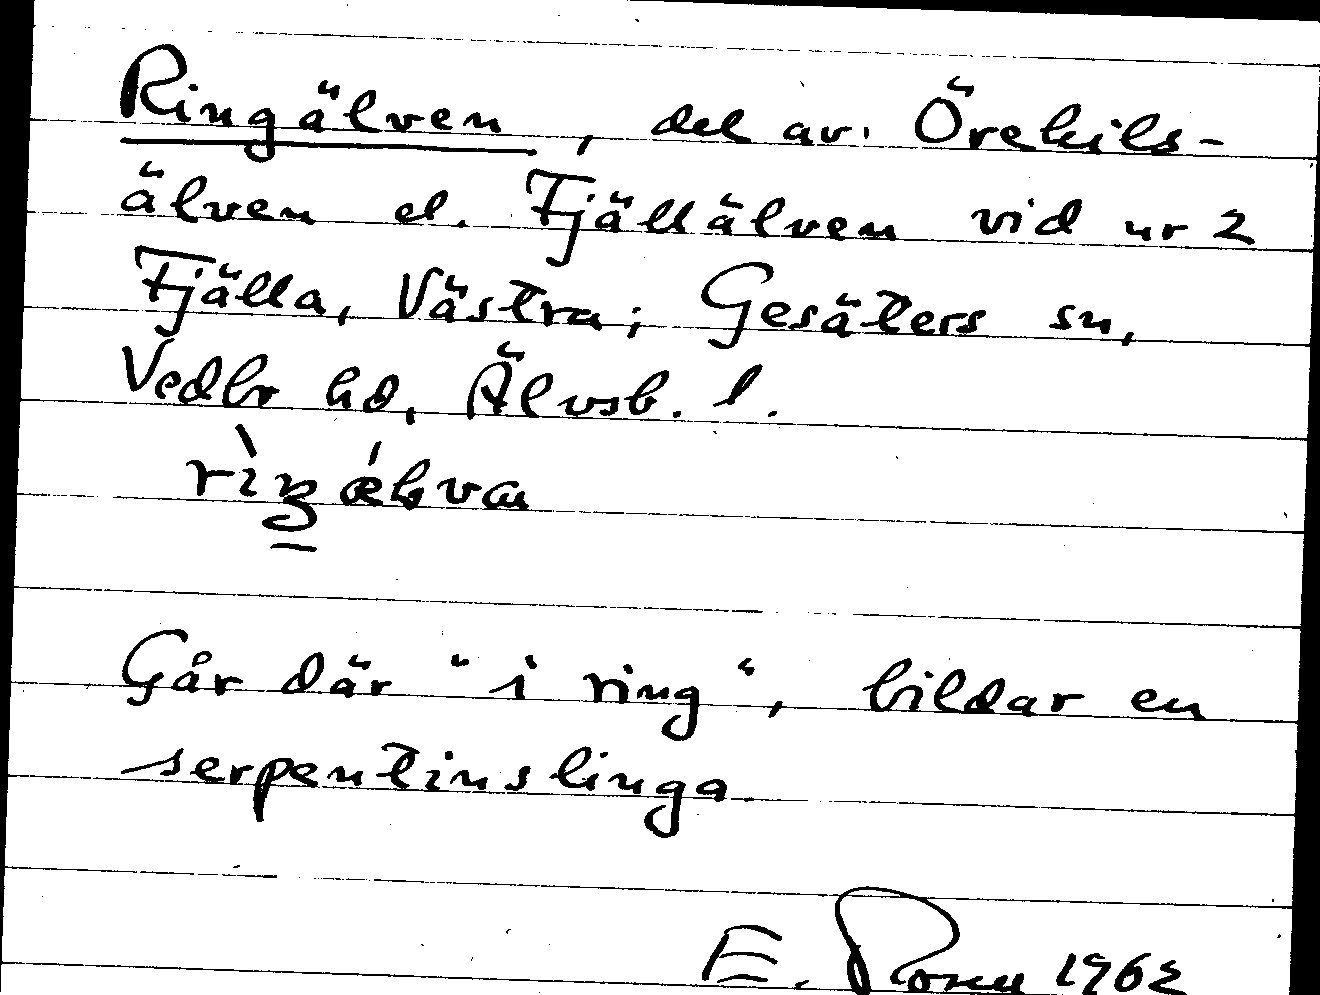 Ringälven, del av Örekils-
älven el. Fjällälven vid nr 2
Fjälla, Västra; Gesäters sn,
Vedbo hd, Älvsb. l.
Går där "i ring", bildar en
serpentinslinga.
E. 1962